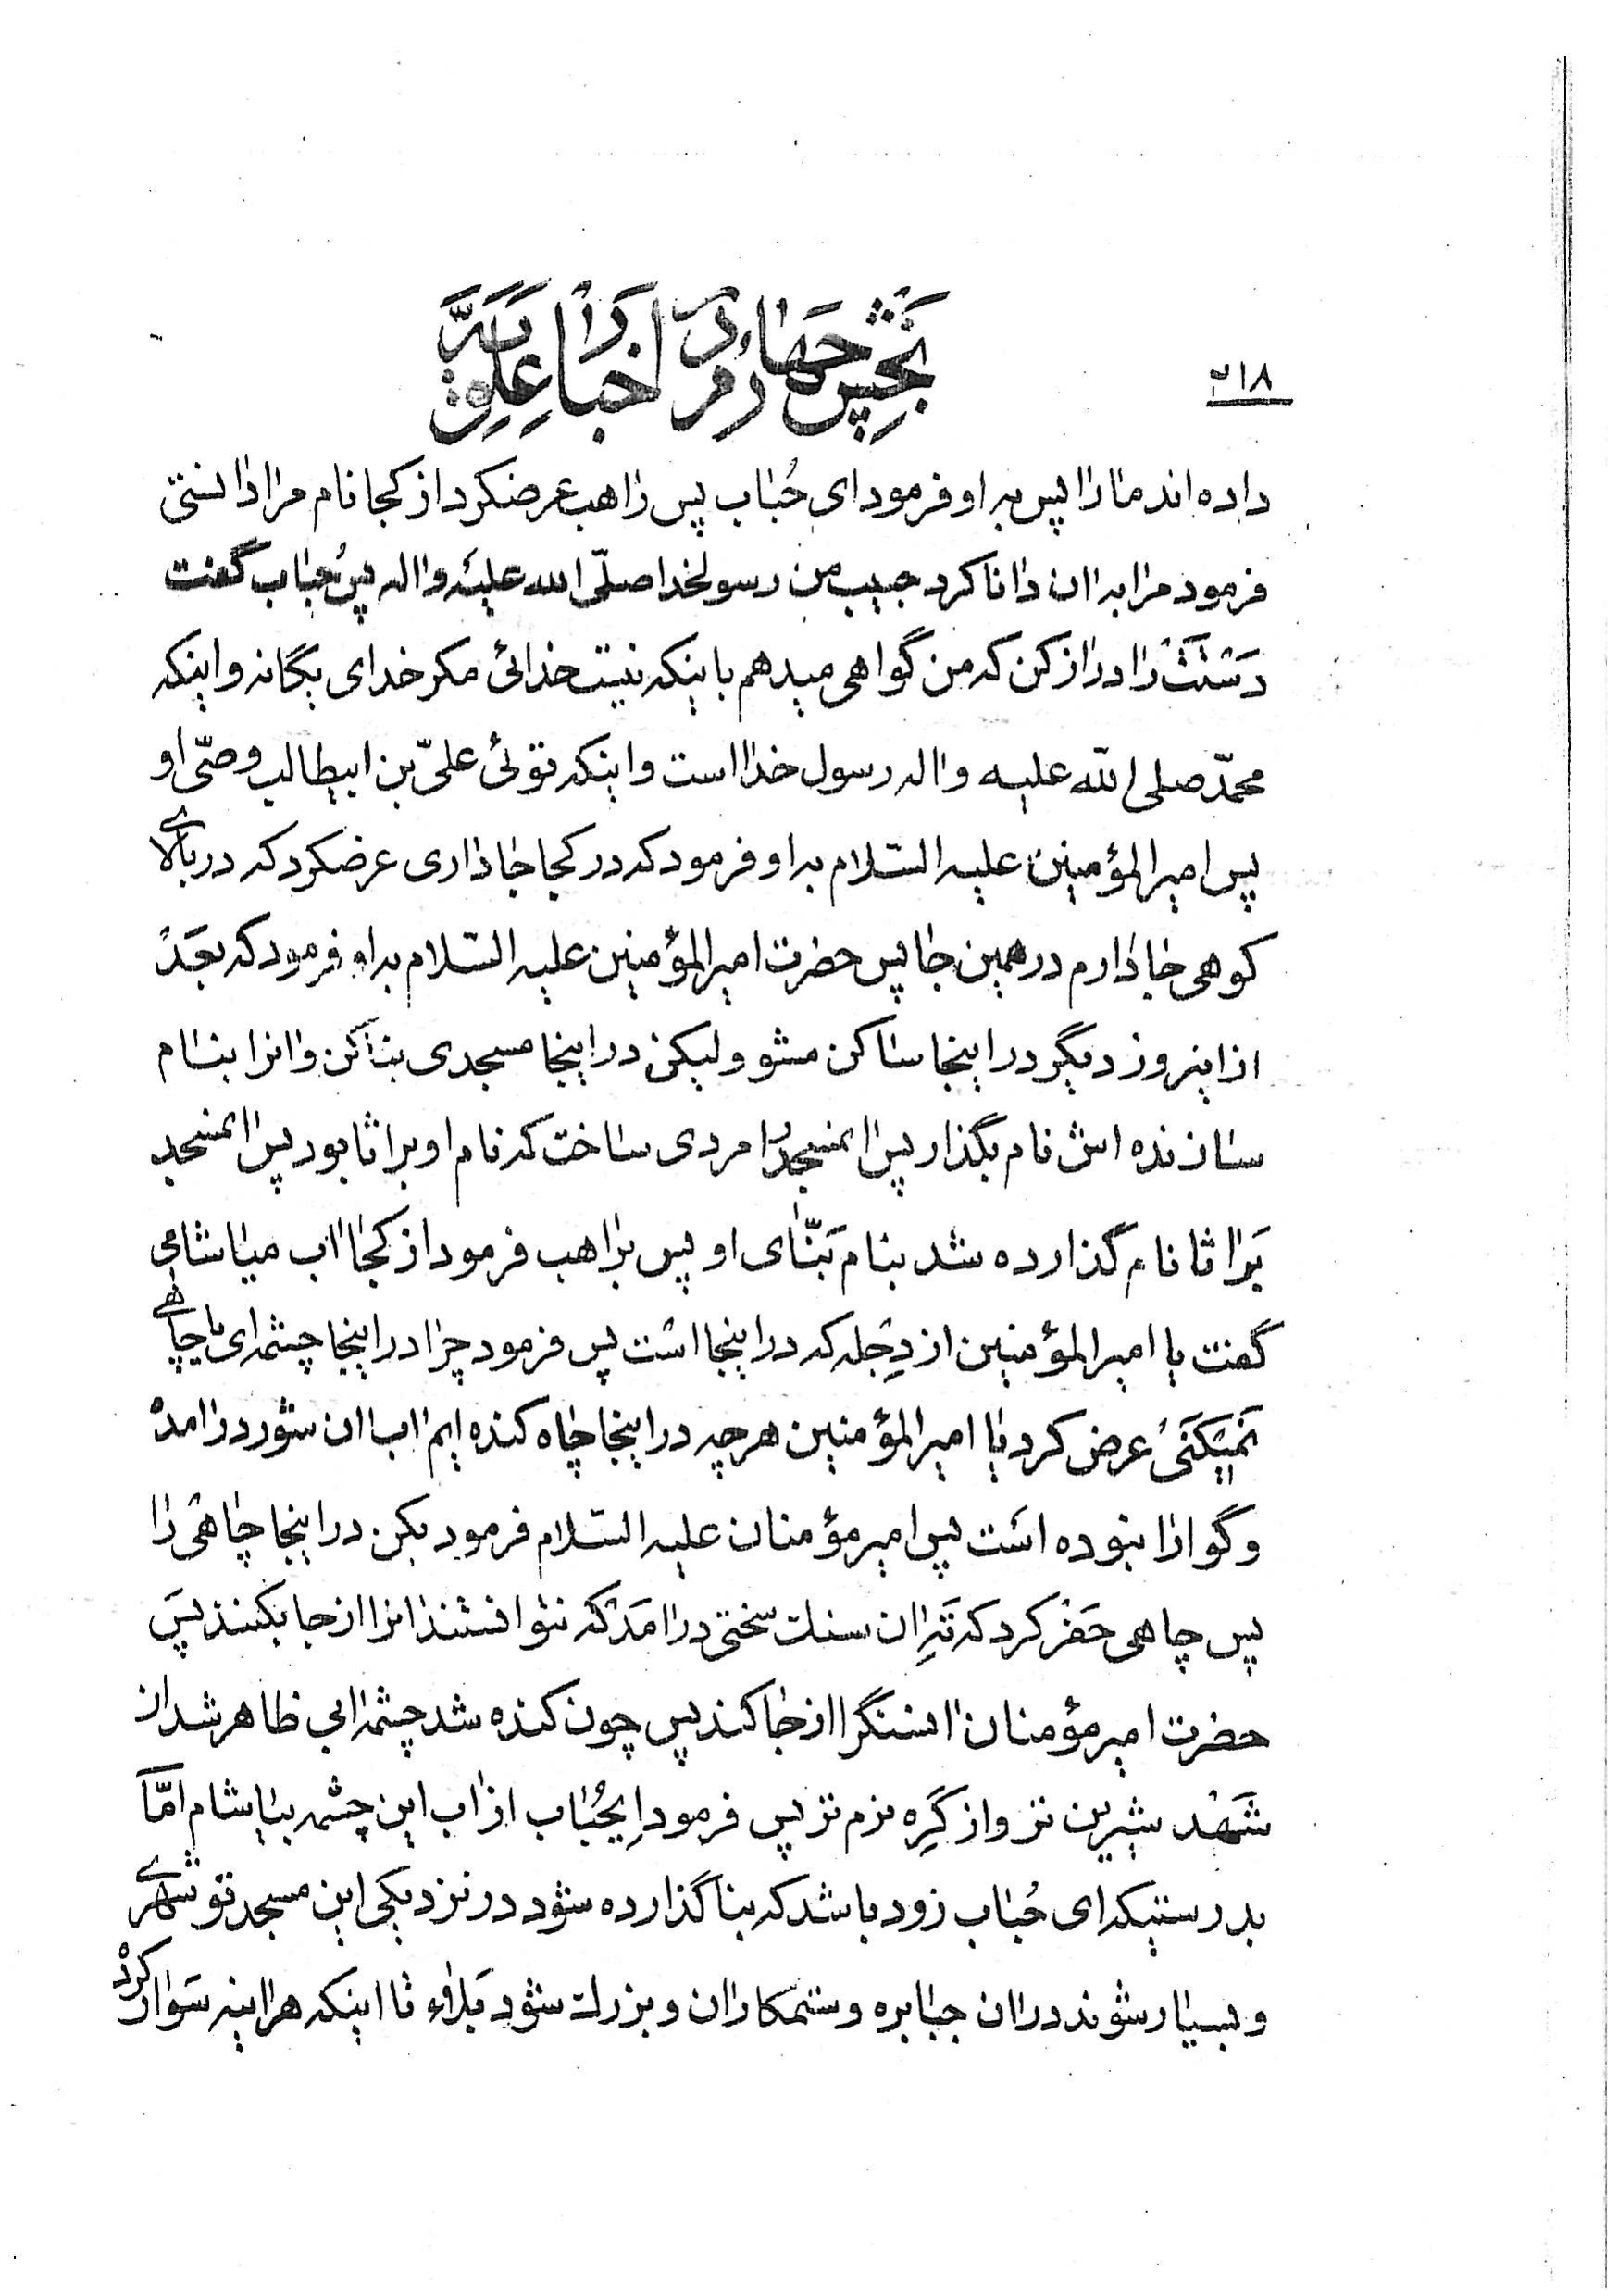 ۲۱۸
بخش چهارم در اخبار علویه
داده اند ما را پس به او فرمود ای حُباب پس راهب عرضکرد از کجا نام مرا دانستی
فرمود مرا به ان دانا کرد حبیب من رسولخدا صلّی الله علیه واله پس حُباب گفت
دَستَت را دراز کن که من گواهی میدهم باینکه نیست خدائی مکر خدای یگانه و اینکه
محمّد صلی الله علیه واله رسول خدا است و اینکه توئی علیّ بن ابیطالب وصّی او
پس امیرالمؤمنین علیه السّلام به او فرمود که در کجا جا داری عرضکرد که در بالای
کوهی جا دارم در همین جا پس حضرت امیرالمؤمنین علیه السّلام به او فرمود که بعَد
از اینروز دیگر در اینجا ساکن مشو ولیکن در اینجا مسجدی بنا کن و انرا بنام
سازنده اش نام بگذار پس انمسجد را مردی ساخت که نام او براثا بود پس انمسجد
بَراثا نام گذارده شد بنام بَنّای او پس براهب فرمود از کجا اب میاشامی
گفت یا امیرالمؤمنین از دِجله که در اینجا است پس فرمود چرا در اینجا چشمه ای یا چاهی
نمیکَنیُ عرض کرد یا امیرالمؤمنین هر چه در اینجا چاه کنده ایم اب ان شور درامده
و گوارا نبوده است پس امیر مؤمنان علیه السّلام فرمود بکن در اینجا چاهی را
پس چاهی حَفر کرد که تَهِ ان سنک سختی درامَد که نتوانستند انرا از جا بکنند پس
حضرت امیر مؤمنان انسنگرا از جا کند پس چون کنده شد چشمه ابی ظاهر شد از
شَهد شیرین تر و از کَرِه نرم تر پس فرمود اِیحُباب از اب این چشمه بیاشام امّا
بدرستیکه ای حُباب زود باشد که بنا گذارده شود در نزدیکی این مسجد تو شهری
و بسیار شوند در ان جبابره و ستمکاران و بزرک شود بَلاء تا اینکه هراینه سَوار کرد